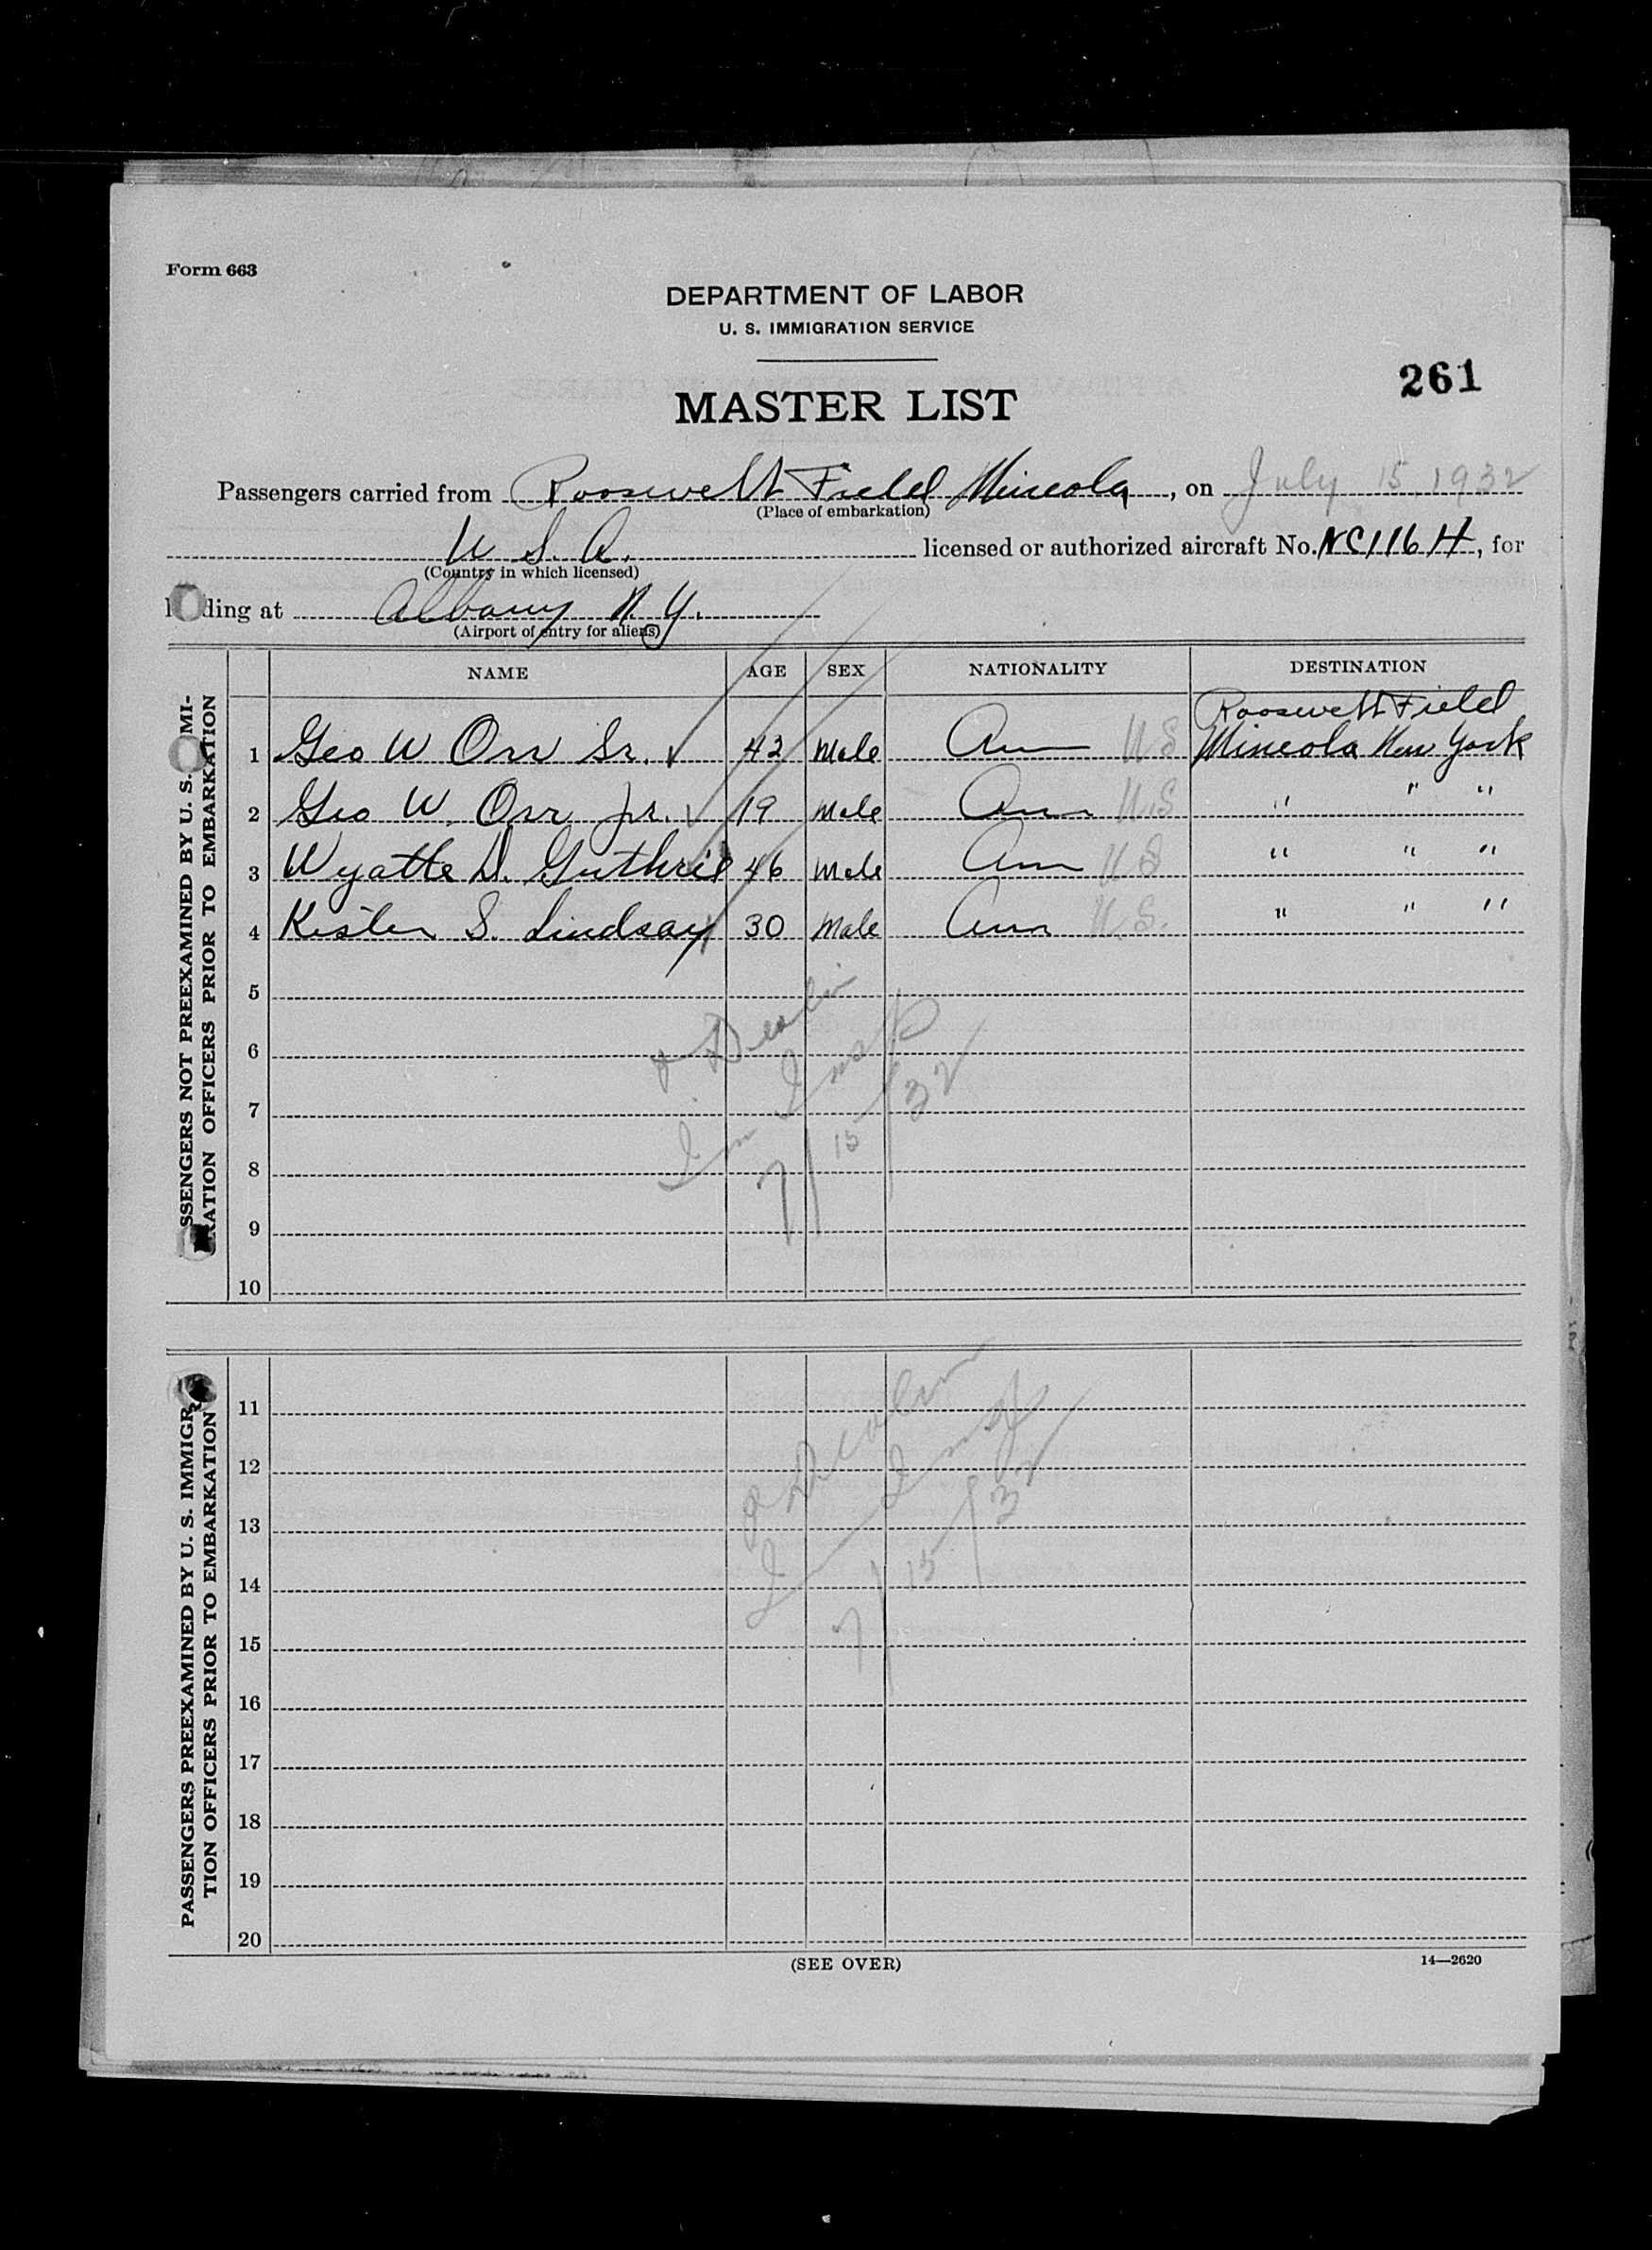 Form 663
DEPARTMENT OF LABOR
U. S. IMMIGRATION SERVICE
261
MASTER LIST
Passengers carried from Roosevelt Field Mineola, on July 15, 1932
(Place of embarkation)
U. S. A. licensed or authorized aircraft No. NC116H, for
(Country in which licensed)
ding at Albany N. Y.
(Airport of entry for aliens)
NAME AGE SEX NATIONALITY DESTINATION
Roosevelt Field
1 Geo W Orr Sr. 42 Male Am U S Mineola New York
2 Geo W. Orr Jr. 19 Male Am U.S " " "
3 Wyatte D. Guthrie 46 Male Am U S " " "
4 Kester S. Lindsay 30 Male Am U.S. " " "
5
6
7
8
9
10
SSENGERS NOT PREEXAMINED BY U. S. IMMI-
RATION OFFICERS PRIOR TO EMBARKATION
Im Insp
7/15/32
11
12
13
14
15
16
17
18
19
20
PASSENGERS PREEXAMINED BY U. S. IMMIGRA
TION OFFICERS PRIOR TO EMBARKATION
Im Insp
7/15/32
(SEE OVER)
14—2620